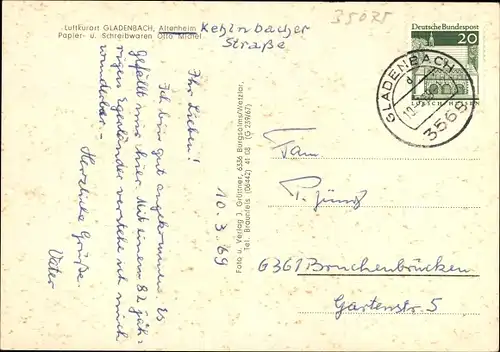 Luftkurort GLADENBACH, Altenheim
Papier- u. Schreibwaren Otto Michel
Kehlnbacher
Straße
35075
Deutsche Bundespost
20
LORSCH HESSEN
GLADENBACH
3569
Ihr Lieben!
Ich bin gut angekommen. Es
gefällt mir hier. Mit einem 82 jäh-
rigen Egerländer verstehe ich mich
wunderbar.-
Herzliche Grüße
Vater
10.3.69
Foto u. Verlag J. Grüttner, 6336 Burgsolms/Wetzlar,
Tel. Braunfels (06442) 41 08 (G 259/67)
Fam
P.
6361 Bruchenbrücken
Gartenstr. 5